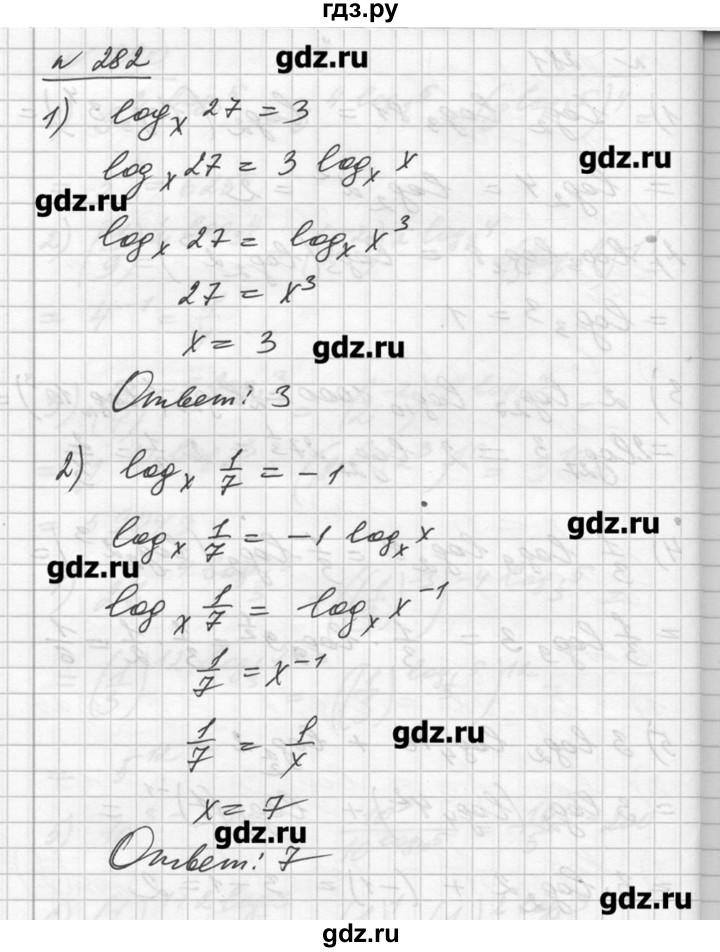 гдз.ру
№ 282
gdz.ru
1) log_x 27 = 3
log_x 27 = 3 log_x x
gdz.ru
gdz.ru
log_x 27 = log_x x³
27 = x³
x = 3
gdz.ru
Ответ: 3
2) log_x 1/7 = -1
gdz.ru
log_x 1/7 = -1 log_x x
gdz.ru
log_x 1/7 = log_x x⁻¹
1/7 = x⁻¹
gdz.ru
1/7 = 1/x
x = 7
gdz.ru
Ответ: 7
gdz.ru
gdz.ru